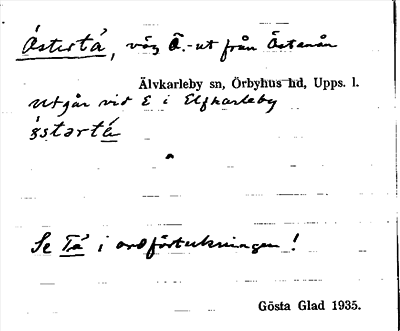 Östertå, väg Ö.-ut från Östanån
Älvkarleby sn, Örbyhus hd, Upps. l.
utgår vid E i Elfkarleby
östərtå
Se Tå i ordförteckningen!
Gösta Glad 1935.